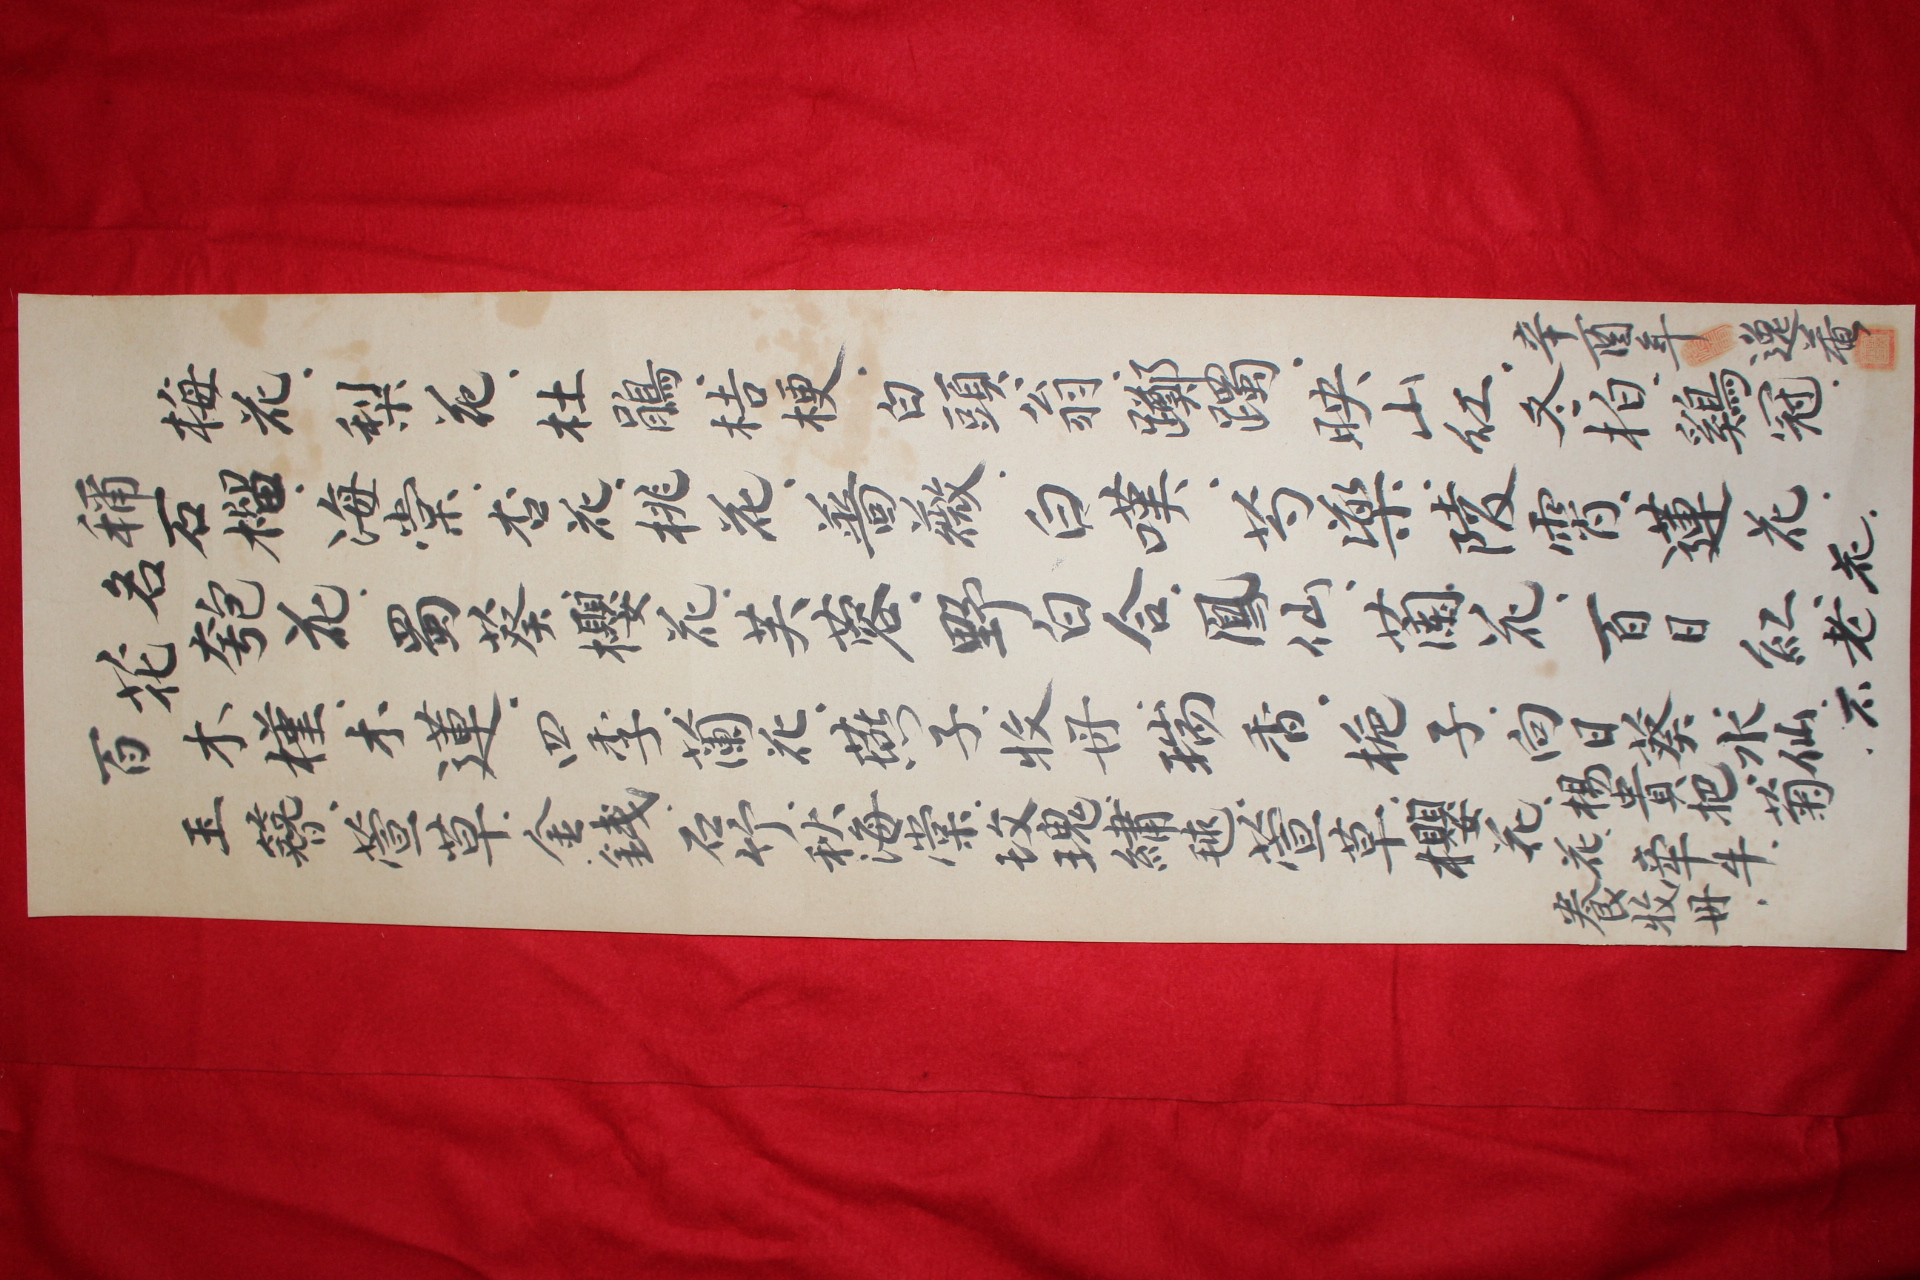 百花名稱
梅花、梨花、杜鵑、桔梗、白頭翁、躑躅、映山紅、冬柏、鷄冠、
石榴、海棠、杏花、桃花、薔薇、白嘆、芍藥、陵霄、蓮花、
匏花、蜀葵、櫻花、芙蓉、野白合、鳳仙、蘭花、百日紅、
木槿、木蓮、四季、蘭花、燕子、收丹、瑞香、梔子、向日葵、水仙、
不老花、
玉簪、萱草、金錢、石竹、秋海棠、玫瑰、繡毬、萱草、櫻花、
楊貴把、菊
花、牽牛、
養收丹、
辛酉年 逸菴